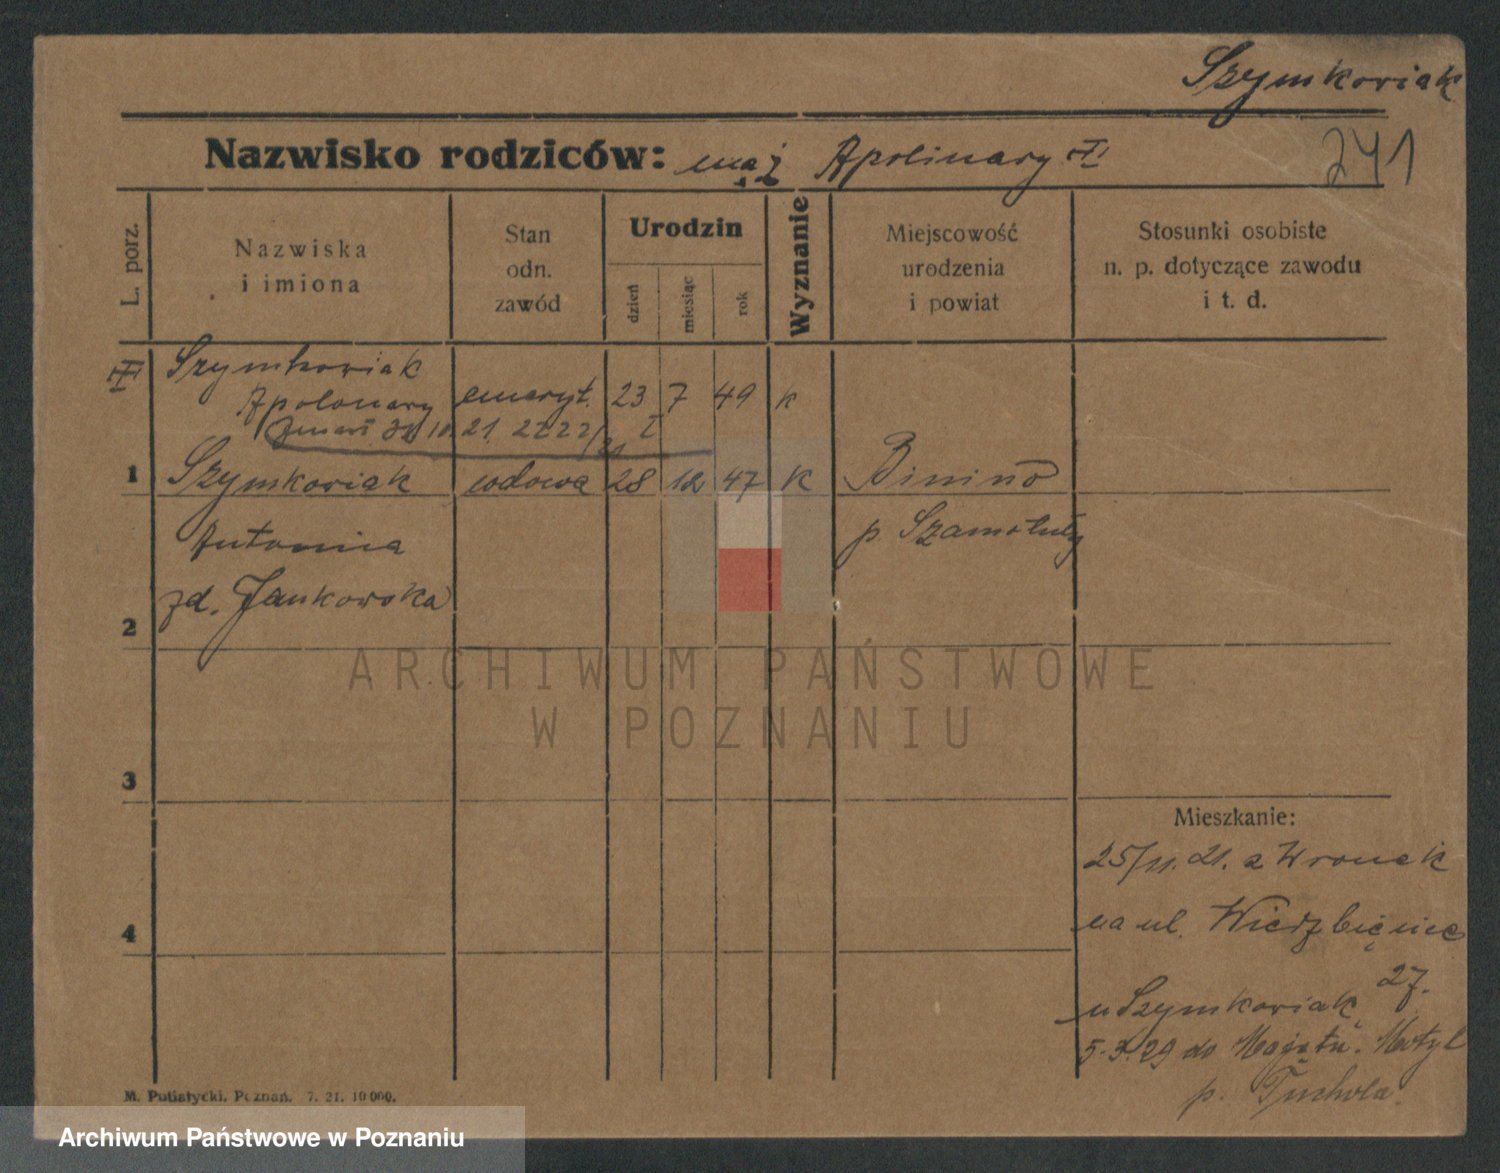 Szymkowiak
Nazwisko rodziców: mąż Apolinary
241
L. porz.
Nazwiska
i imiona
Stan
odn.
zawód
Urodzin
dzień
miesiąc
rok
Wyznanie
Miejscowość
urodzenia
i powiat
Stosunki osobiste
n. p. dotyczące zawodu
i t. d.
Szymkowiak
Apolonary emeryt. 23 7 49 k
21. 2222/21 I
1 Szymkowiak wdowa 28 12 47 k Binino
Antonina p Szamotuły
zd. Jankowska
2
ARCHIWUM PAŃSTWOWE
W POZNANIU
3
Mieszkanie:
25/11. 21. z Wronek
4
na ul. Wierzbięcice
27.
u Szymkowiak
5.3.29 do Majętn. Motyl
p. Tuchola.
M. Putiatycki, Poznań. 7. 21. 10 000.
Archiwum Państwowe w Poznaniu